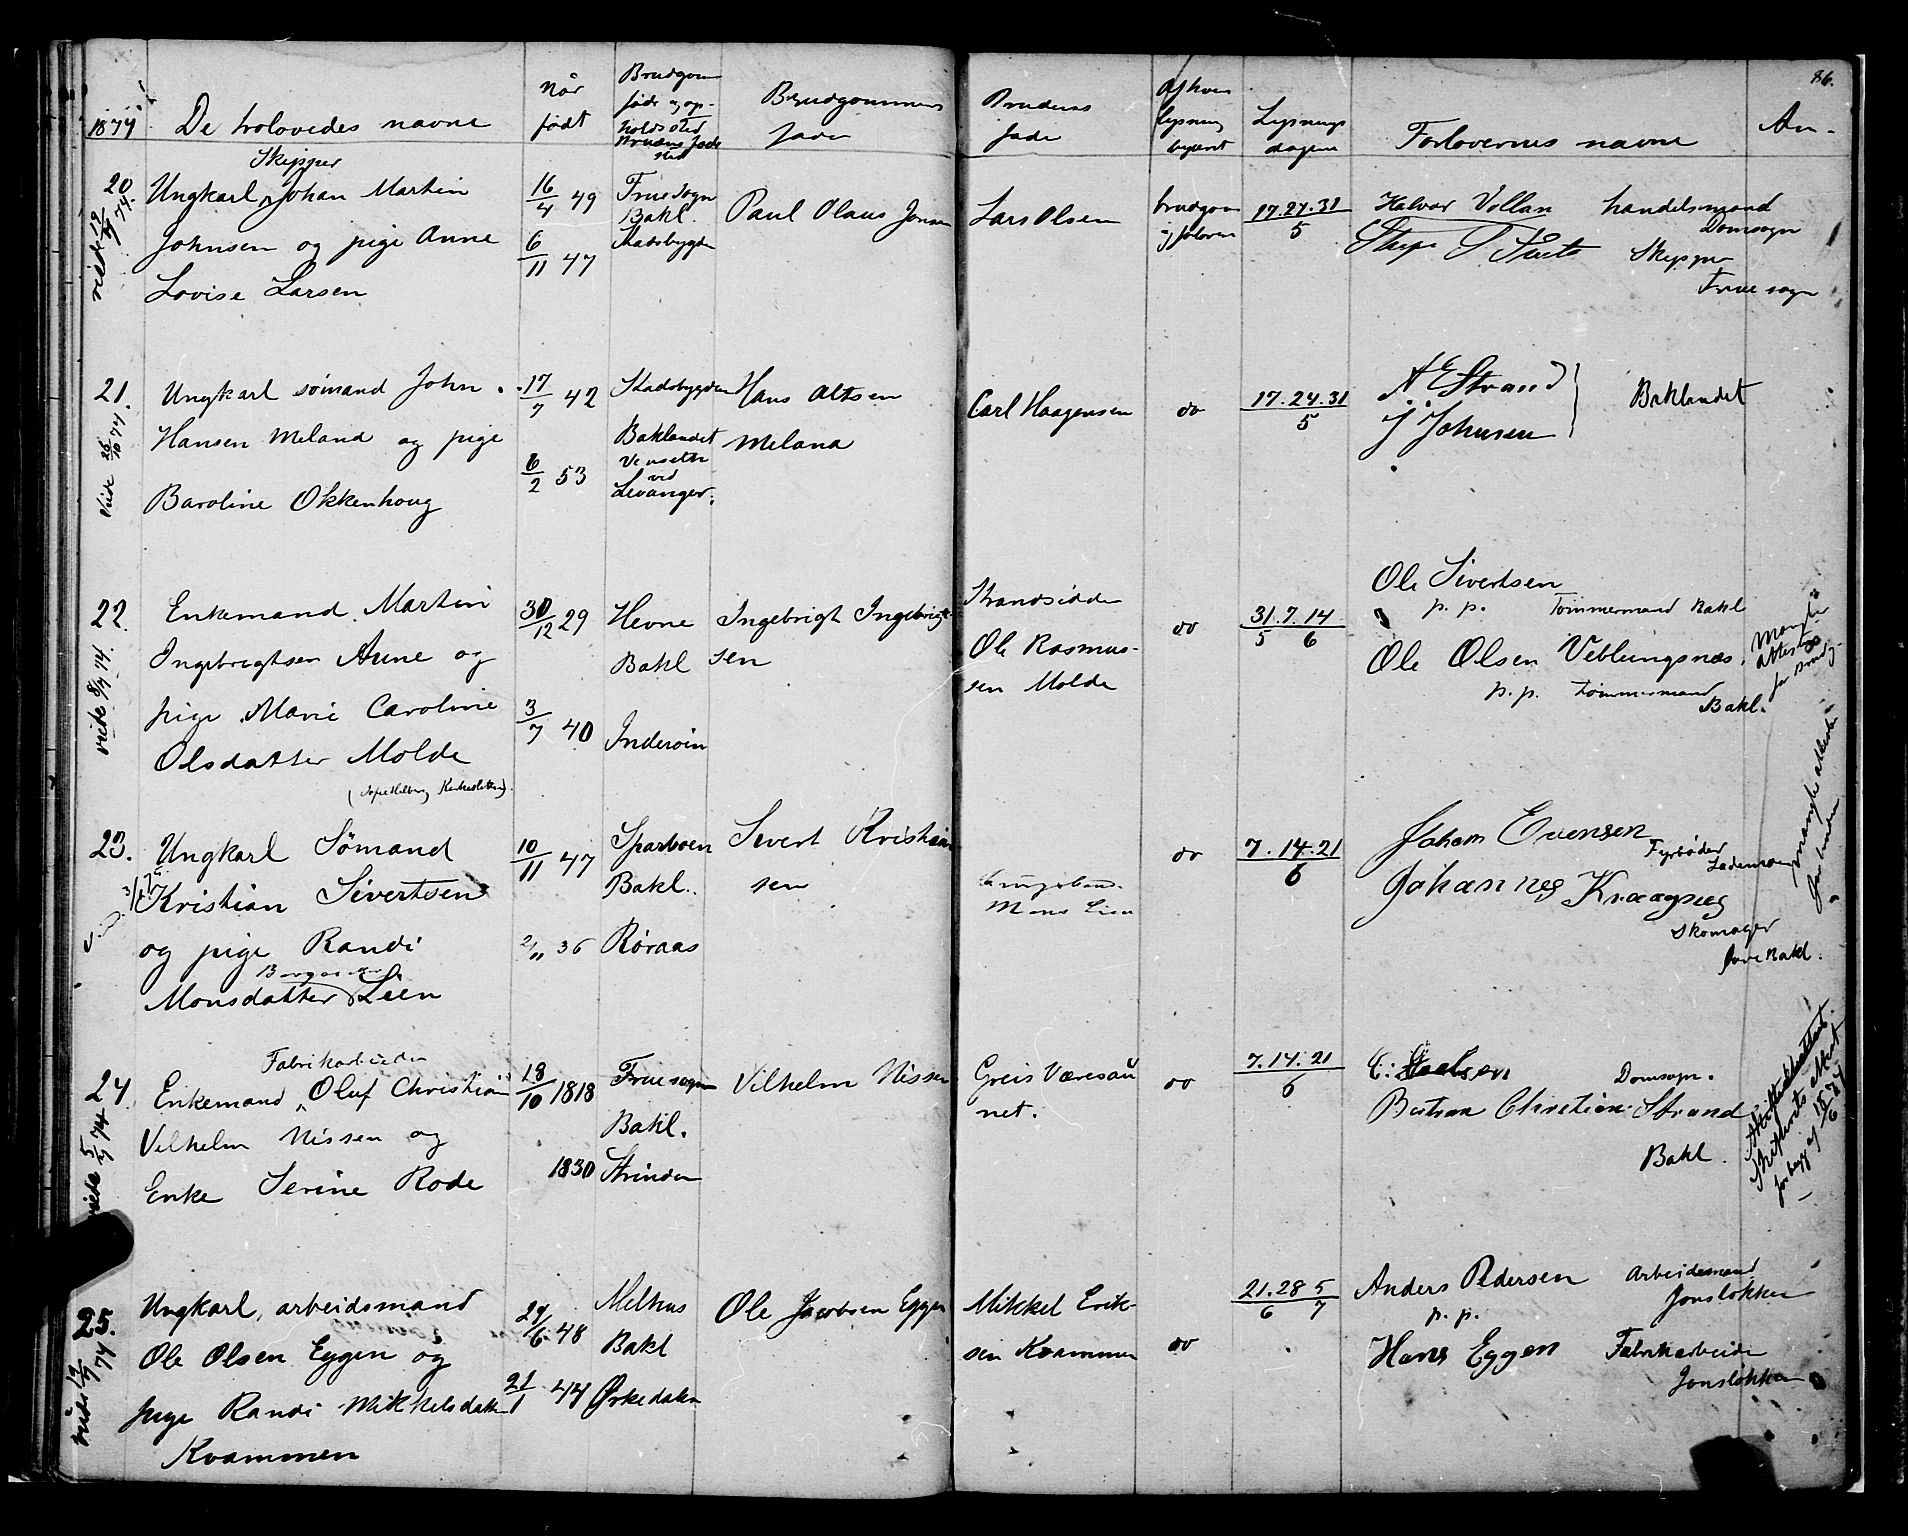 86.
1874. De trolovedes navne
Når født
Brudgom føde og op-
holdssted
Brudens føde
sted
Brudgommens
fader
Brudens
fader
Af hvem
lysning
begjært
Lysnings
dagene
Forlovernes navne
An-
20
viede 19/7 74.
Skipper
Ungkarl Johan Martin
Johnsen og pige Anne
Lovise Larsen
16/4 49
6/11 47
Fruesogn
Bakl.
Stadsbygden
Paul Olaus Jonsen
Lars Olsen
brudgom
og forlover
17.24.31
5
Halvor Vollan handelsmand
Domsogn
Skipper
Frue sogn
21.
Viede 25/10 74.
Ungkarl sømand John
Hansen Meland og pige
Baroline Okkenhoug
17/7 42
6/2 53
Stadsbygden
Baklandet
ved
Levanger.
Hans Altsen
Meland
Carl Haagensen
do
17.24.31
5
A E Strand
J Johnsen
Baklandet
22.
viede 8/7 74.
Enkemand Martin
Ingebrigtsen Aune og
pige Marie Caroline
Olsdatter Molde
30/12 29
3/7 40
Hevne
Bakl
Inderøin
Ingebrigt Ingebrigt-
sen
Strandsidder
Ole Rasmus-
sen Molde
do
31.7.14
5 6
Ole Sivertsen
p. p. Tømmermand Bakl
Ole Olsen Veblungsnæs.
p. p. tømmermand
Bakl.
Mangler
Attest
for brudg.
23.
Ungkarl Sømand
Kristian Sivertsen
og pige Randi
Monsdatter Lien
10/11 47
2/11 36
Sparboen
Bakl.
Røraas
Sivert Kristian
sen
Mons Lien
do
7.14.21
6
Johan Evensen
Fyrbøder
Lademoen
Johannes Kraagvig
Skomager
Øvre Bakl.
mangler attester
for bruden
24
viede 5/7 74
Fabrikarbeider
Enkemand Oluf Christian
Vilhelm Nissen og
Enke Serine Rode
18/10 1818
1830
Fruesogn
Bakl.
Strinden
Vilhelm Nissen
Greis Væresau
net.
do
7.14.21
6
Domsogn.
Bastian Christian Strand
Bakl.
Skifteattest.
Skifterets Attest
for begge af 15/6 74
25.
viede 12/7 74
Ungkarl, arbeidsmand
Ole Olsen Eggen og
pige Randi Mikkelsdatter
Kvammen
29/6 48
21/1 44
Melhus
Bakl
Ørkedalen
Ole Jacobsen Eggen
Mikkel Erik-
sen Kvammen
do
21.28 5
6 7
Anders Pedersen Arbeidsmand
p. p. Jonsløkken
Hans Eggen Fabrikarbeider
Jonsløkken